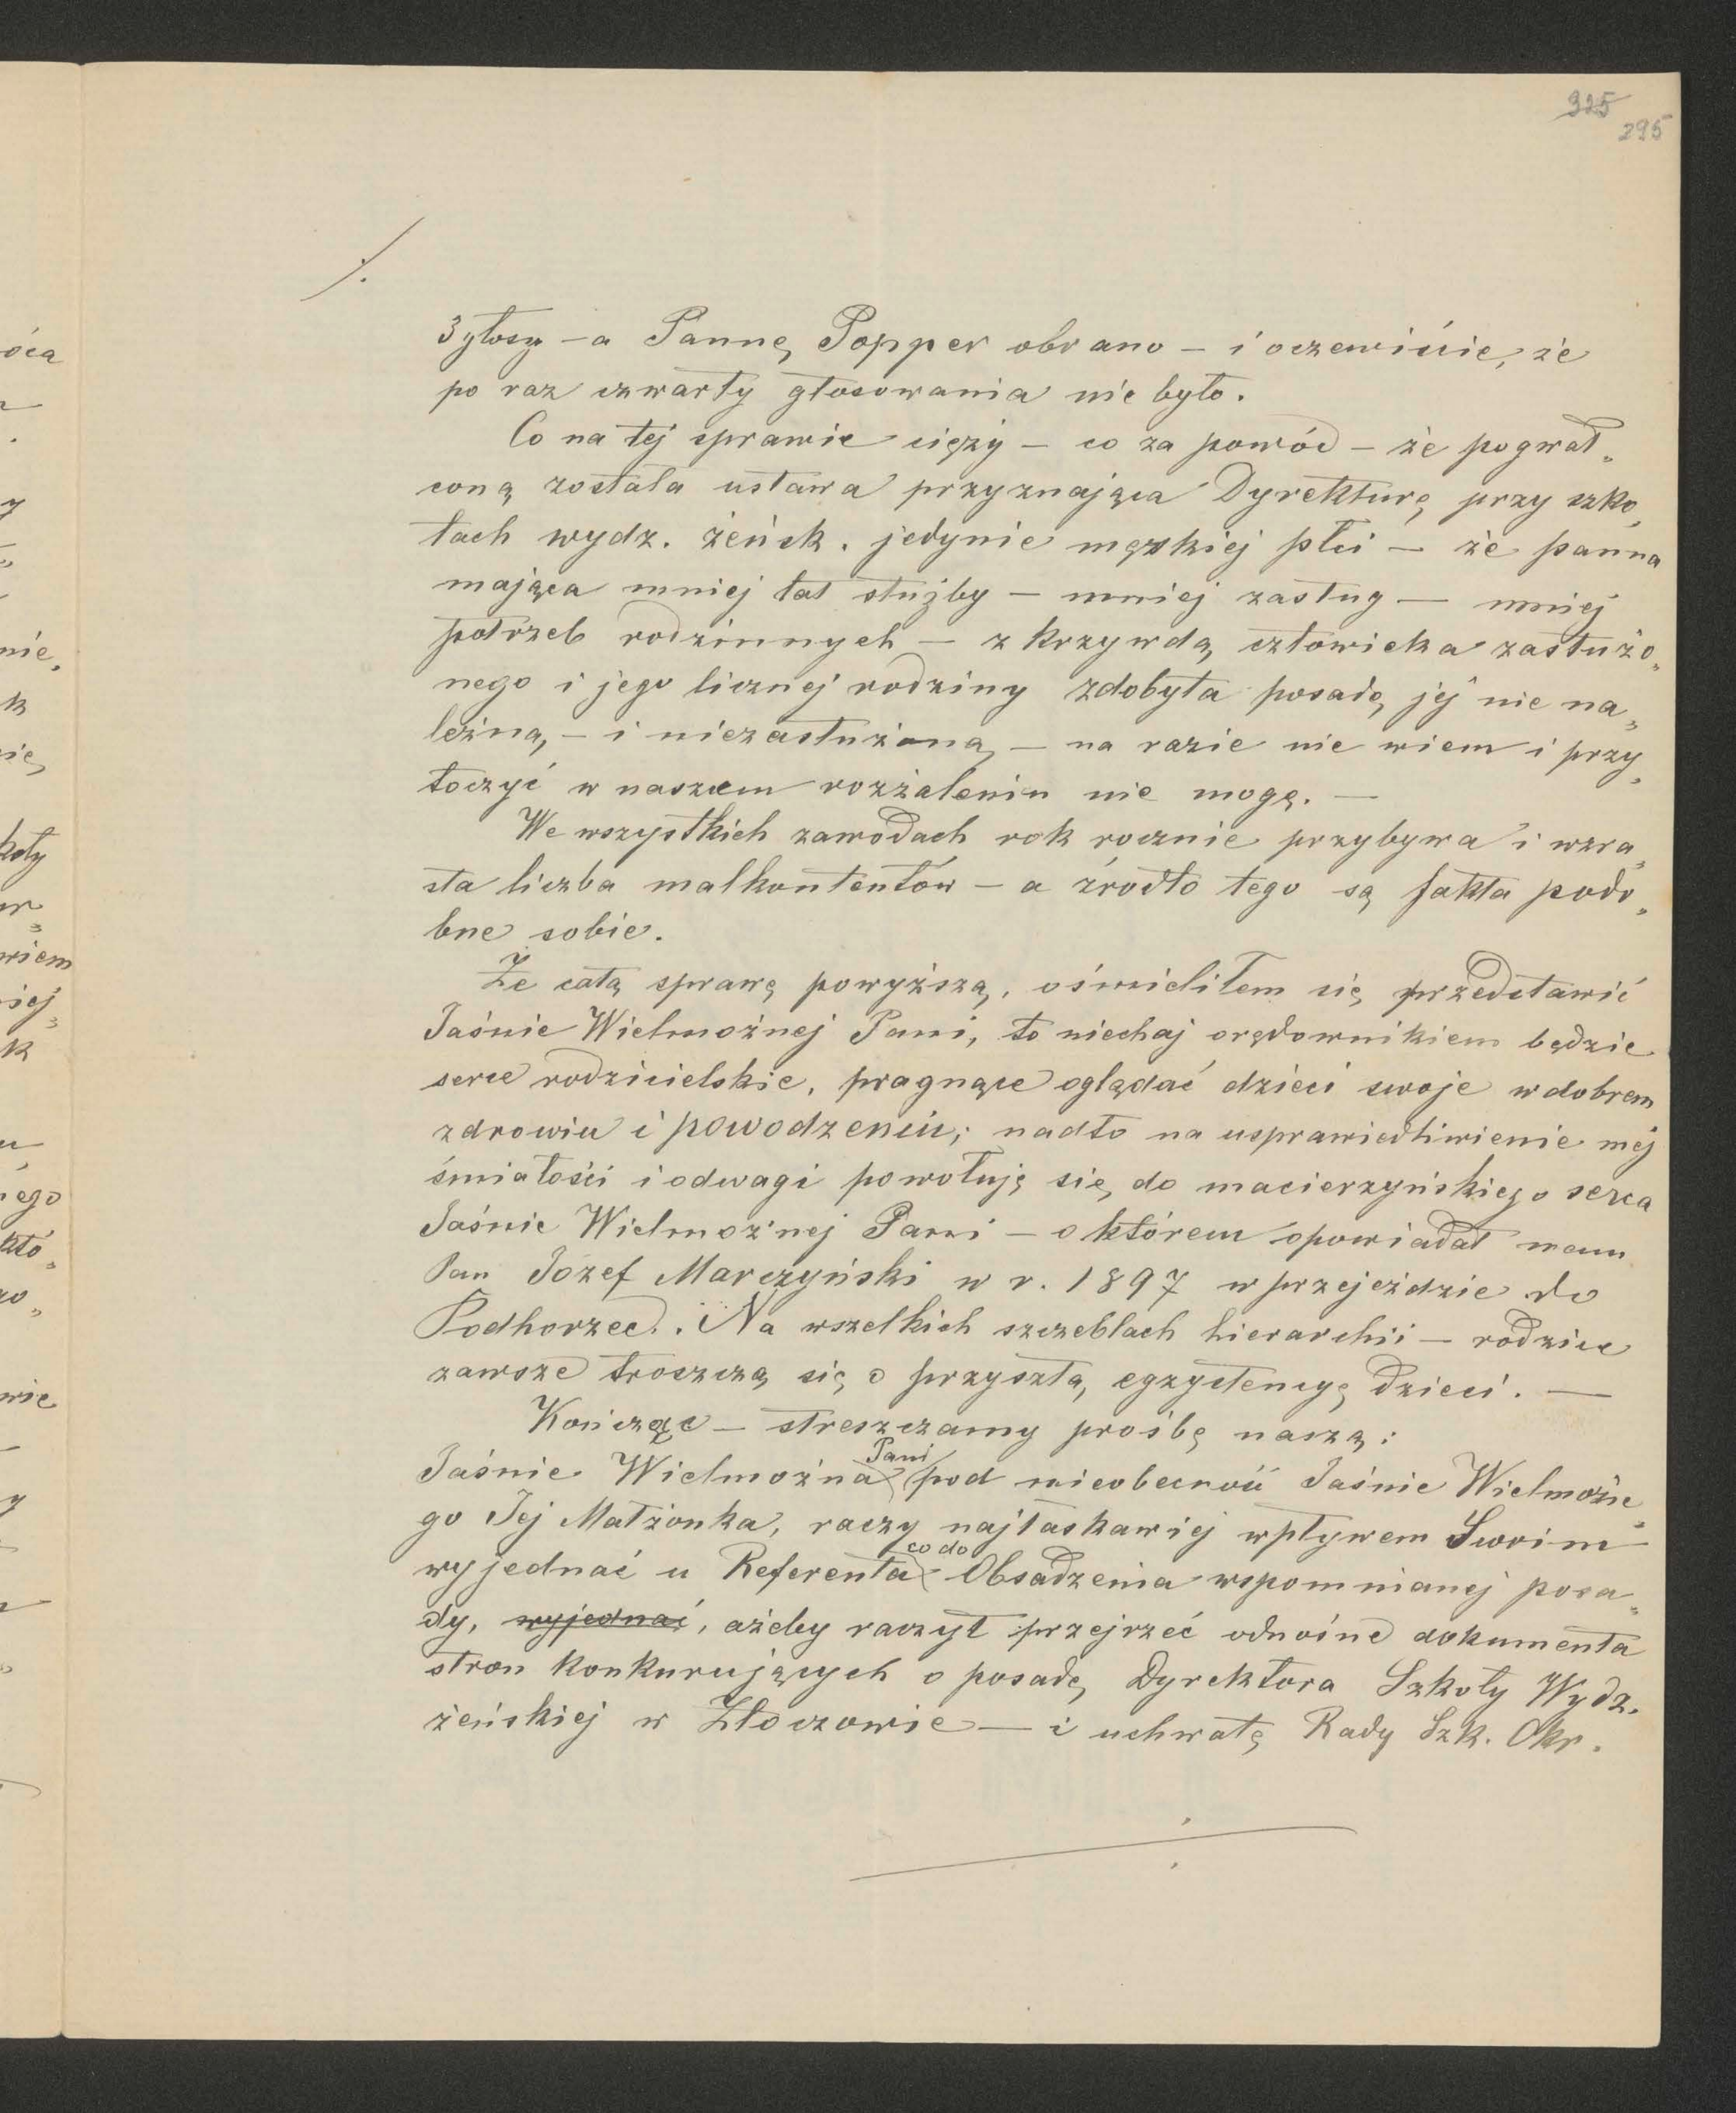 325
295
./.
3 głosy – a Pannę Popper obrano – i oczewiście, że
po raz czwarty głosowania nie było.
Co na tej sprawie cięży – co za powód – że pogwał„
coną została ustawa przyznająca Dyrekturę przy szko„
łach wydz. żeńsk. jedynie męzkiej płci – że panna
mająca mniej lat służby – mniej zasług – mniej
potrzeb rodzinnych – z krzywdą człowieka zasłużo„
nego i jego licznej rodziny zdobyła posadę jej nie na„
leżną, – i niezasłużoną, – na razie nie wiem i przy„
toczyć w naszem rozżaleniu nie mogę. –
We wszystkich zawodach rok rocznie przybywa i wzra„
sta liczba malkontentów – a źrodło tego są fakta podo„
bne sobie.
Że całą sprawę powyższą, ośmieliłem się przedstawić
Jaśnie Wielmożnej Pani, to niechaj orędownikiem będzie
serce rodzicielskie, pragnące oglądać dzieci swoje w dobrem
zdrowiu i powodzeniu; nadto na usprawiedliwienie mej
śmiałości i odwagi powołuję się do macierzyńskiego serca
Jaśnie Wielmożnej Pani – o którem opowiadał nam
Pan Józef Marczyński w r. 1897 w przejeździe do
Podhorzec. Na wszelkich szczeblach hierarchii – rodzice
zawsze troszczą się o przyszłą egzystencyę dzieci. –
Kończąc – streszczamy prośbę naszą:
Pani
Jaśnie Wielmożna pod nieobecność Jaśnie Wielmożne„
go Jej Małżonka, raczy najłaskawiej wpływem Swoim
co do
wyjednać u Referenta Obsadzenia wspomnianej posa„
dy, wyjednać, ażeby raczył przejrzeć odnośne dokumenta
stron konkurujących o posadę Dyrektora Szkoły Wydz.
żeńskiej w Złoczowie – i uchwałę Rady Szk. Okr.
óca
y
nie,
k
nie,
koły
wiem
siej„
k
nego
któ„
wie
y